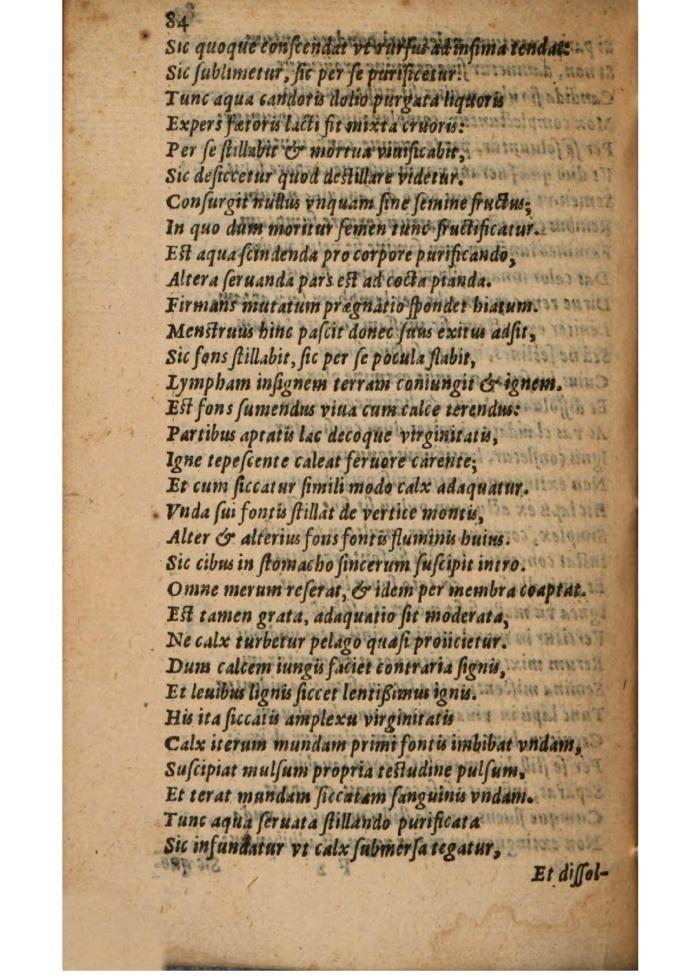 84
Sic quoque conscendat vt rursus ad infima tendat:
Sic sublimetur, sic per se purificetur:
Tunc aqua candoris dolio purgata liquoris
Expers fætoris lacti sit mixta cruoris:
Per se stillabit & mortua viuificabit,
Sic desiccetur quod destillare videtur.
Consurgit nullus vnquam sine semine fructus;
In quo dum moritur semen tunc fructificatur.
Est aqua scindenda pro corpore purificando,
Altera seruanda pars est ad cocta pianda.
Firmans mutatum prægnatio spondet hiatum.
Menstruus hinc pascit donec suus exitus adsit,
Sic fons stillabit, sic per se pocula flabit,
Lympham insignem terram coniungit & ignem.
Est fons sumendus viua cum calce terendus:
Partibus aptatis lac decoque virginitatis,
Igne tepescente caleat feruore carente;
Et cum siccatur simili modo calx adaquatur.
Vnda sui fontis stillat de vertice montis,
Alter & alterius fons fontis fluminis huius.
Sic cibus in stomacho sincerum suscipit intro.
Omne merum reserat, & idem per membra coaptat.
Est tamen grata, adaquatio sit moderata,
Ne calx turbetur pelago quasi proiicietur.
Dum calcem iungis faciet contraria signis,
Et leuibus lignis siccet lentißimus ignis.
His ita siccatis amplexu virginitatis
Calx iterum mundam primi fontis imbibat vndam,
Suscipiat mulsum propria testudine pulsum,
Et terat mundam siccatam sanguinis vndam.
Tunc aqua seruata stillando purificata
Sic infundatur vt calx submersa tegatur,
Et dissol-